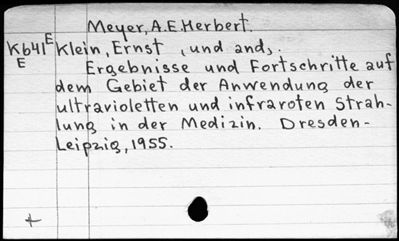 Meyer, A.E.Herbert.
Kb41E Klein, Ernst (und and).
E Ergebnisse und Fortschritte auf
dem Gebiet der Anwendung der
ultravioletten und infraroten Strah-
lung in der Medizin. Dresden-
Leipzig, 1955.